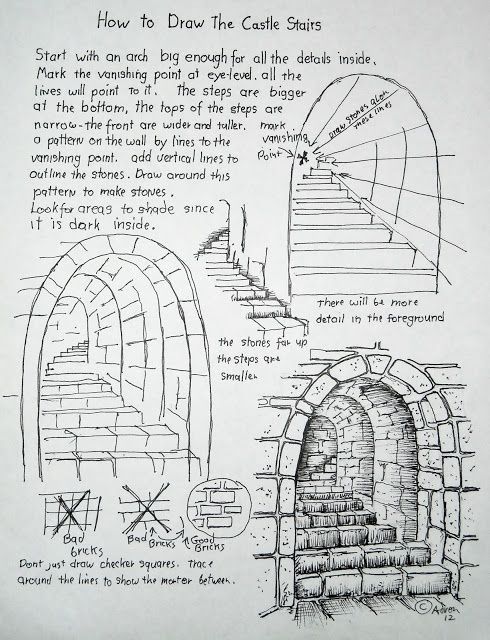 How to Draw The Castle Stairs
Start with an arch big enough for all the details inside.
Mark the vanishing point at eye-level. all the
lines will point to it. The steps are bigger
at the bottom, the tops of the steps are
narrow-the front are wider and taller.
a pattern on the wall by lines to the
vanishing point. add vertical lines to
outline the stones. Draw around this
pattern to make stones.
Look for areas to shade since
it is dark inside.
mark
vanishing
Point
Draw stones along
these lines
There will be more
detail in the foreground
the stones far up
the steps are
smaller
Bad
bricks
Bad
Bricks
Good
Bricks
Dont just draw checker squares. Trace
around the lines to show the morter between.
©
12